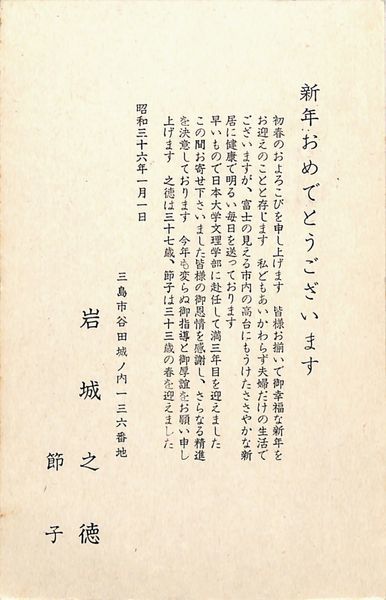 新年おめでとうございます
初春のおよろこびを申し上げます　皆様お揃いで御幸福な新年を
お迎えのことと存じます　私どもあいかわらず夫婦だけの生活で
ございますが、富士の見える市内の高台にもうけたささやかな新
居に健康で明るい毎日を送っております
早いもので日本大学文理学部に赴任して満三年目を迎えました
この間お寄せ下さいました皆様の御恩情を感謝し、さらなる精進
を決意しております　今年も変らぬ御指導と御厚誼をお願い申し
上げます　之徳は三十七歳、節子は三十三歳の春を迎えました
昭和三十六年一月一日
三島市谷田城ノ内一三六番地
岩城之徳
節子